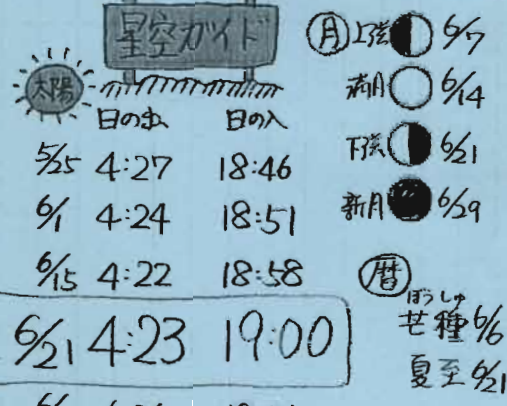 星空ガイド
太陽
日の出 日の入
5/25 4:27 18:46
6/1 4:24 18:51
6/15 4:22 18:58
6/21 4:23 19:00
月 上弦 6/7
満月 6/14
下弦 6/21
新月 6/29
暦
ぼうしゅ
芒種 6/6
夏至 6/21